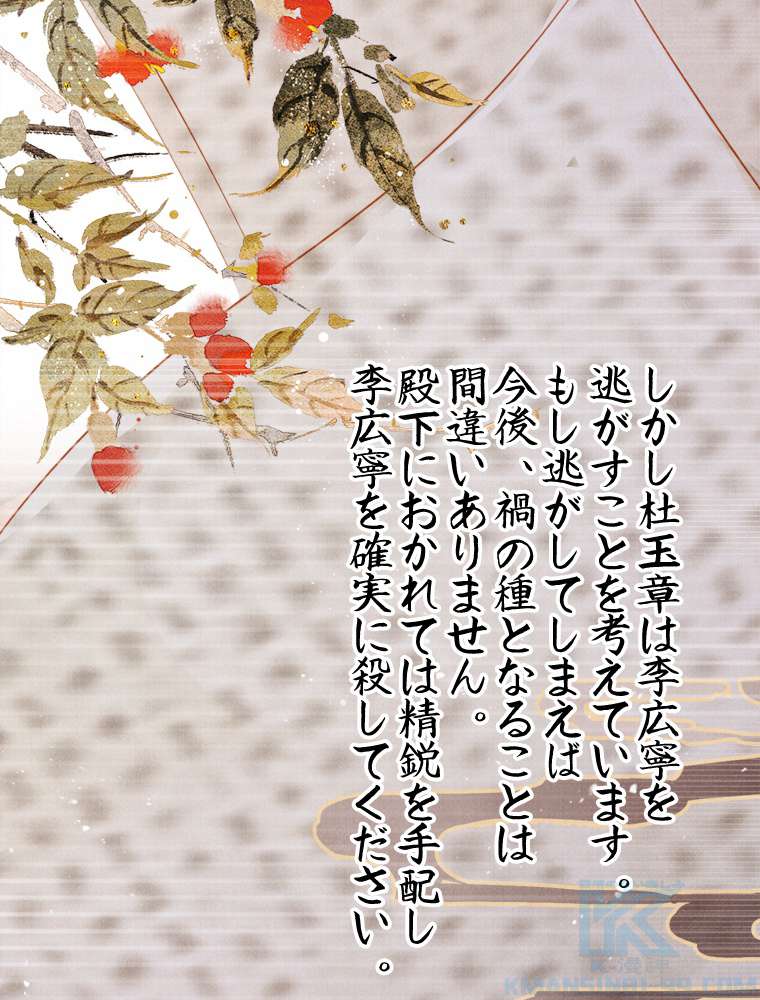 しかし杜玉章は李広寧を
逃がすことを考えています。
もし逃がしてしまえば
今後、禍の種となることは
間違いありません。
殿下におかれては精鋭を手配し
李広寧を確実に殺してください。